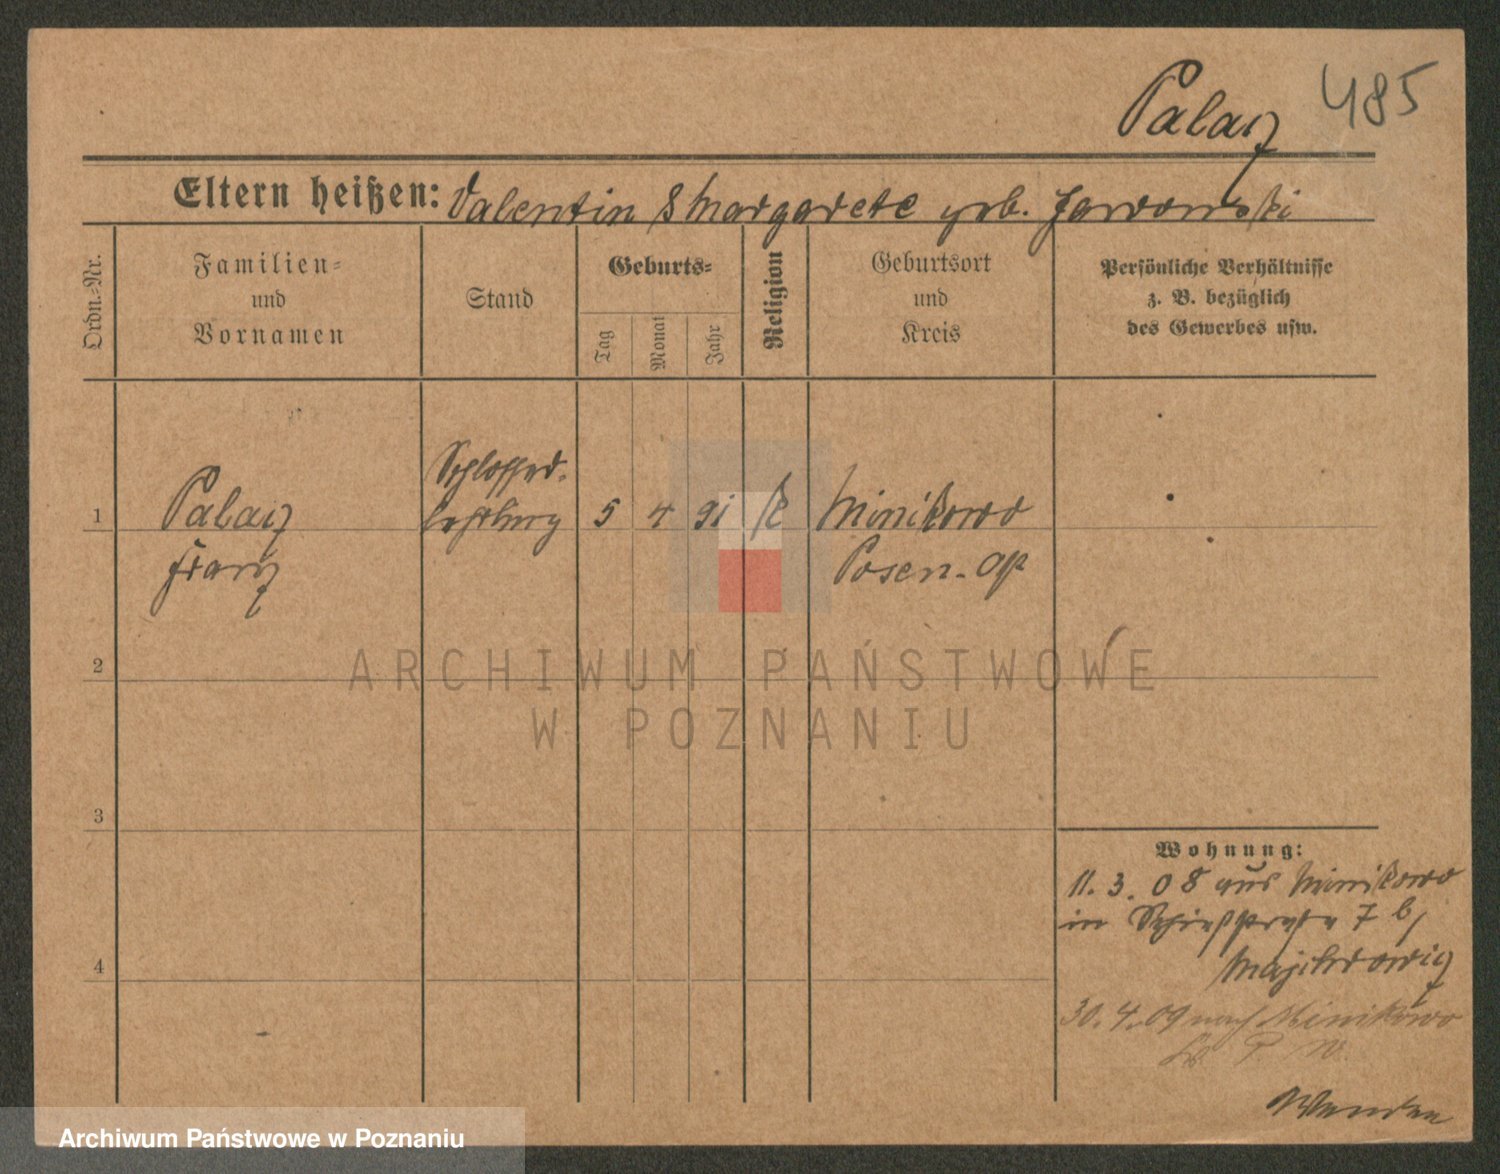 Palacz 485
Eltern heißen: Valentin & Margarete geb. Jaroworski
Ordn.-Nr.
Familien-
und
Vornamen
Stand
Geburts-
Tag
Monat
Jahr
Religion
Geburtsort
und
Kreis
Persönliche Verhältnisse
z. B. bezüglich
des Gewerbes usw.
1
Palacz
Franz
Schlosser-
lehrling
5 4 91 k
Minikowo
Posen-Ost
2
ARCHIWUM PAŃSTWOWE
W POZNANIU
3
4
Wohnung:
11. 3. 08 aus Minikowo
in Schießstraße 7 b/
30.4.09 nach Minikowo
Kr. P. W.
Wenden
Archiwum Państwowe w Poznaniu